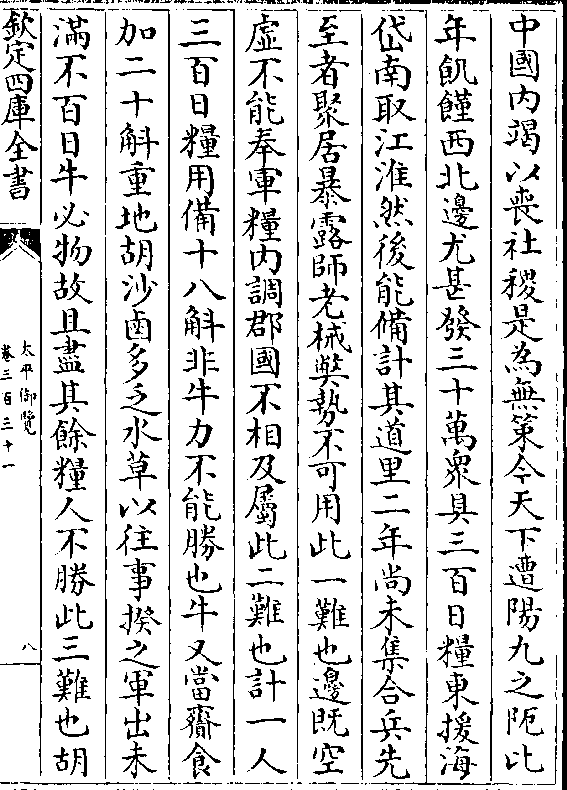 中國内竭以喪社稷是為無策今天下遭陽九之阨比
年飢饉西北邊尤甚發三十萬衆具三百日糧東援海
岱南取江淮然後能備計其道里二年尚未集合兵先
至者聚居暴露師老械弊勢不可用此一難也邊既空
虚不能奉軍糧内調郡國不相及屬此二難也計一人
三百日糧用備十八斛非牛力不能勝也牛又當齎食
加二十斛重地胡沙鹵多乏水草以往事揆之軍出未
滿不百日牛必物故且盡其餘糧人不勝此三難也胡
欽定四庫全書
太平御覽
卷三百三十一
八